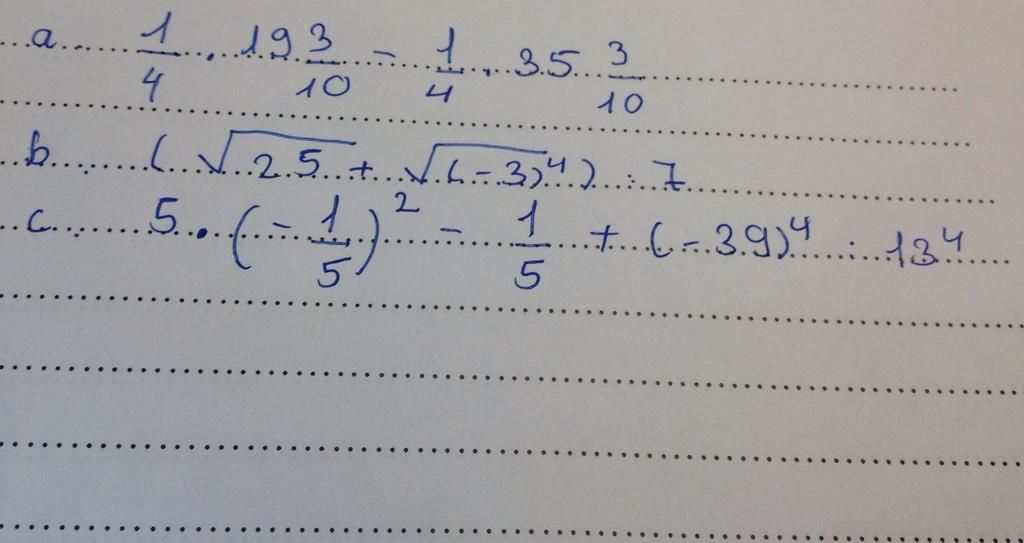 a 1/4 . 19 3/10 - 1/4 . 35 3/10
b (√25 + √(-3)⁴) : 7
c 5 . (-1/5)² - 1/5 + (-39)⁴ : 13⁴